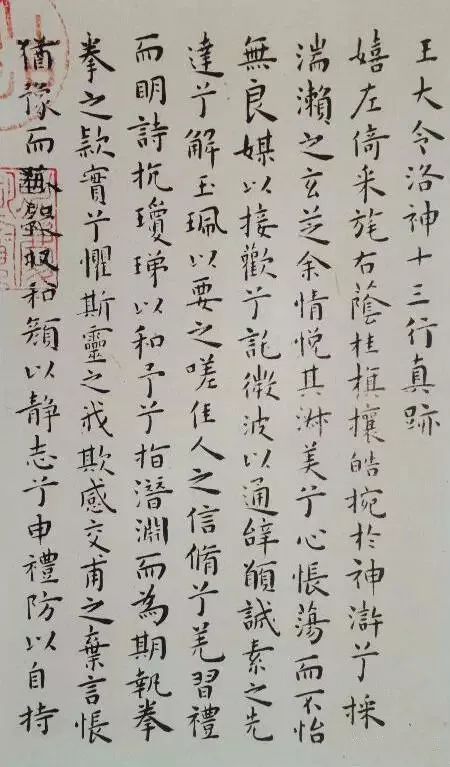 王大令洛神十三行真跡
嬉左倚采旄右蔭桂旗攘皓捥於神滸兮採
湍瀨之玄芝余情悅其淋美兮心悵蕩而不怡
無良媒以接歡兮託微波以通辭願誠素之先
達兮解玉珮以要之嗟佳人之信脩兮羌習禮
而明詩抗瓊珶以和予兮指潛淵而為期執拳
拳之款實兮懼斯靈之我欺感交甫之棄言悵
猶豫而狐疑收和顏以靜志兮申禮防以自持